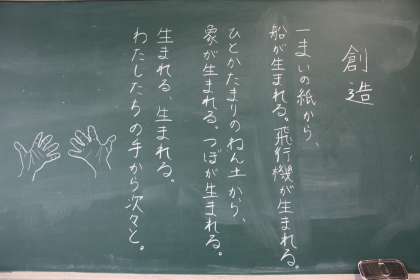 創造
一まいの紙から、
船が生まれる。飛行機が生まれる。
ひとかたまりのねん土から、
象が生まれる。つぼが生まれる。
生まれる、生まれる。
わたしたちの手から次々と。